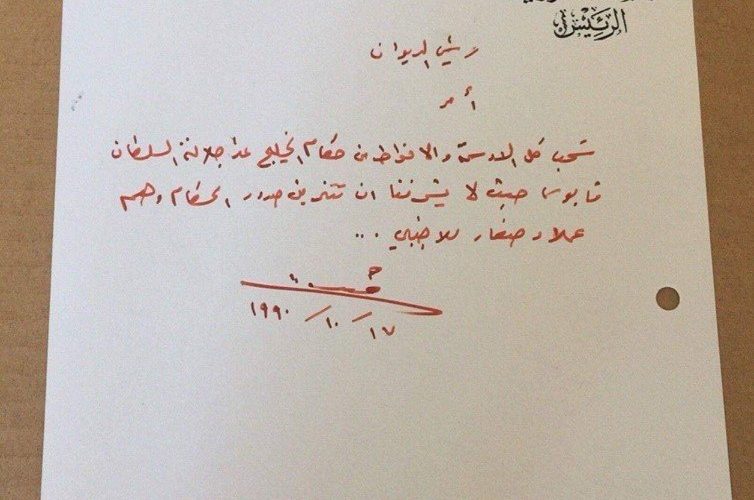 الرئيس
رئيس الديوان
أمر
تسحب كل الاوسمة والانواط من حكام الخليج عدا جلالة السلطان
قابوس حيث لا يشرفنا ان تتزين صدور الحكام وهم
عملاء صغار للاجنبي ...
١٧ / ١٠ / ١٩٩٠